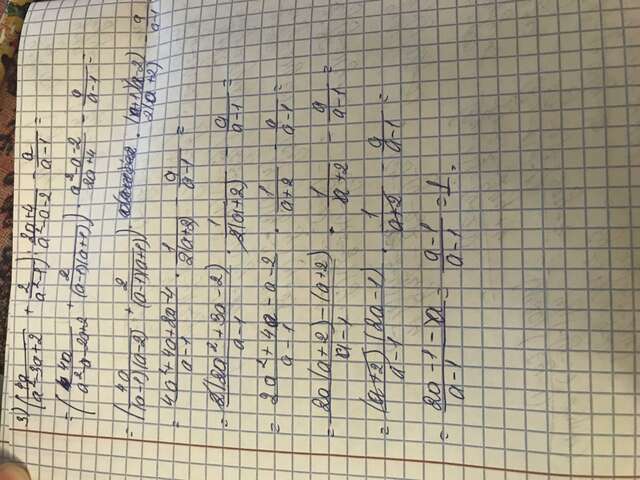 3) (4a/(a²-3a+2) + 2/(a²-1)) : (2a+4)/(a²-a-2) - a/(a-1) =
= (4a/(a²-a-2a+2) + 2/((a-1)(a+1))) · (a²-a-2)/(2a+4) - a/(a-1) =
= (4a/((a-1)(a-2)) + 2/((a-1)(a+1))) · ((a+1)(a-2))/(2(a+2)) - a/(a-1)
= (4a²+4a+2a-4)/(a-1) · 1/(2(a+2)) - a/(a-1) =
= (2(2a²+3a-2))/(a-1) · 1/(2(a+2)) - a/(a-1) =
= (2a²+4a-a-2)/(a-1) · 1/(a+2) - a/(a-1) =
= (2a(a+2)-(a+2))/(a-1) · 1/(a+2) - a/(a-1) =
= ((a+2)(2a-1))/(a-1) · 1/(a+2) - a/(a-1) =
= (2a-1-a)/(a-1) = (a-1)/(a-1) = 1.